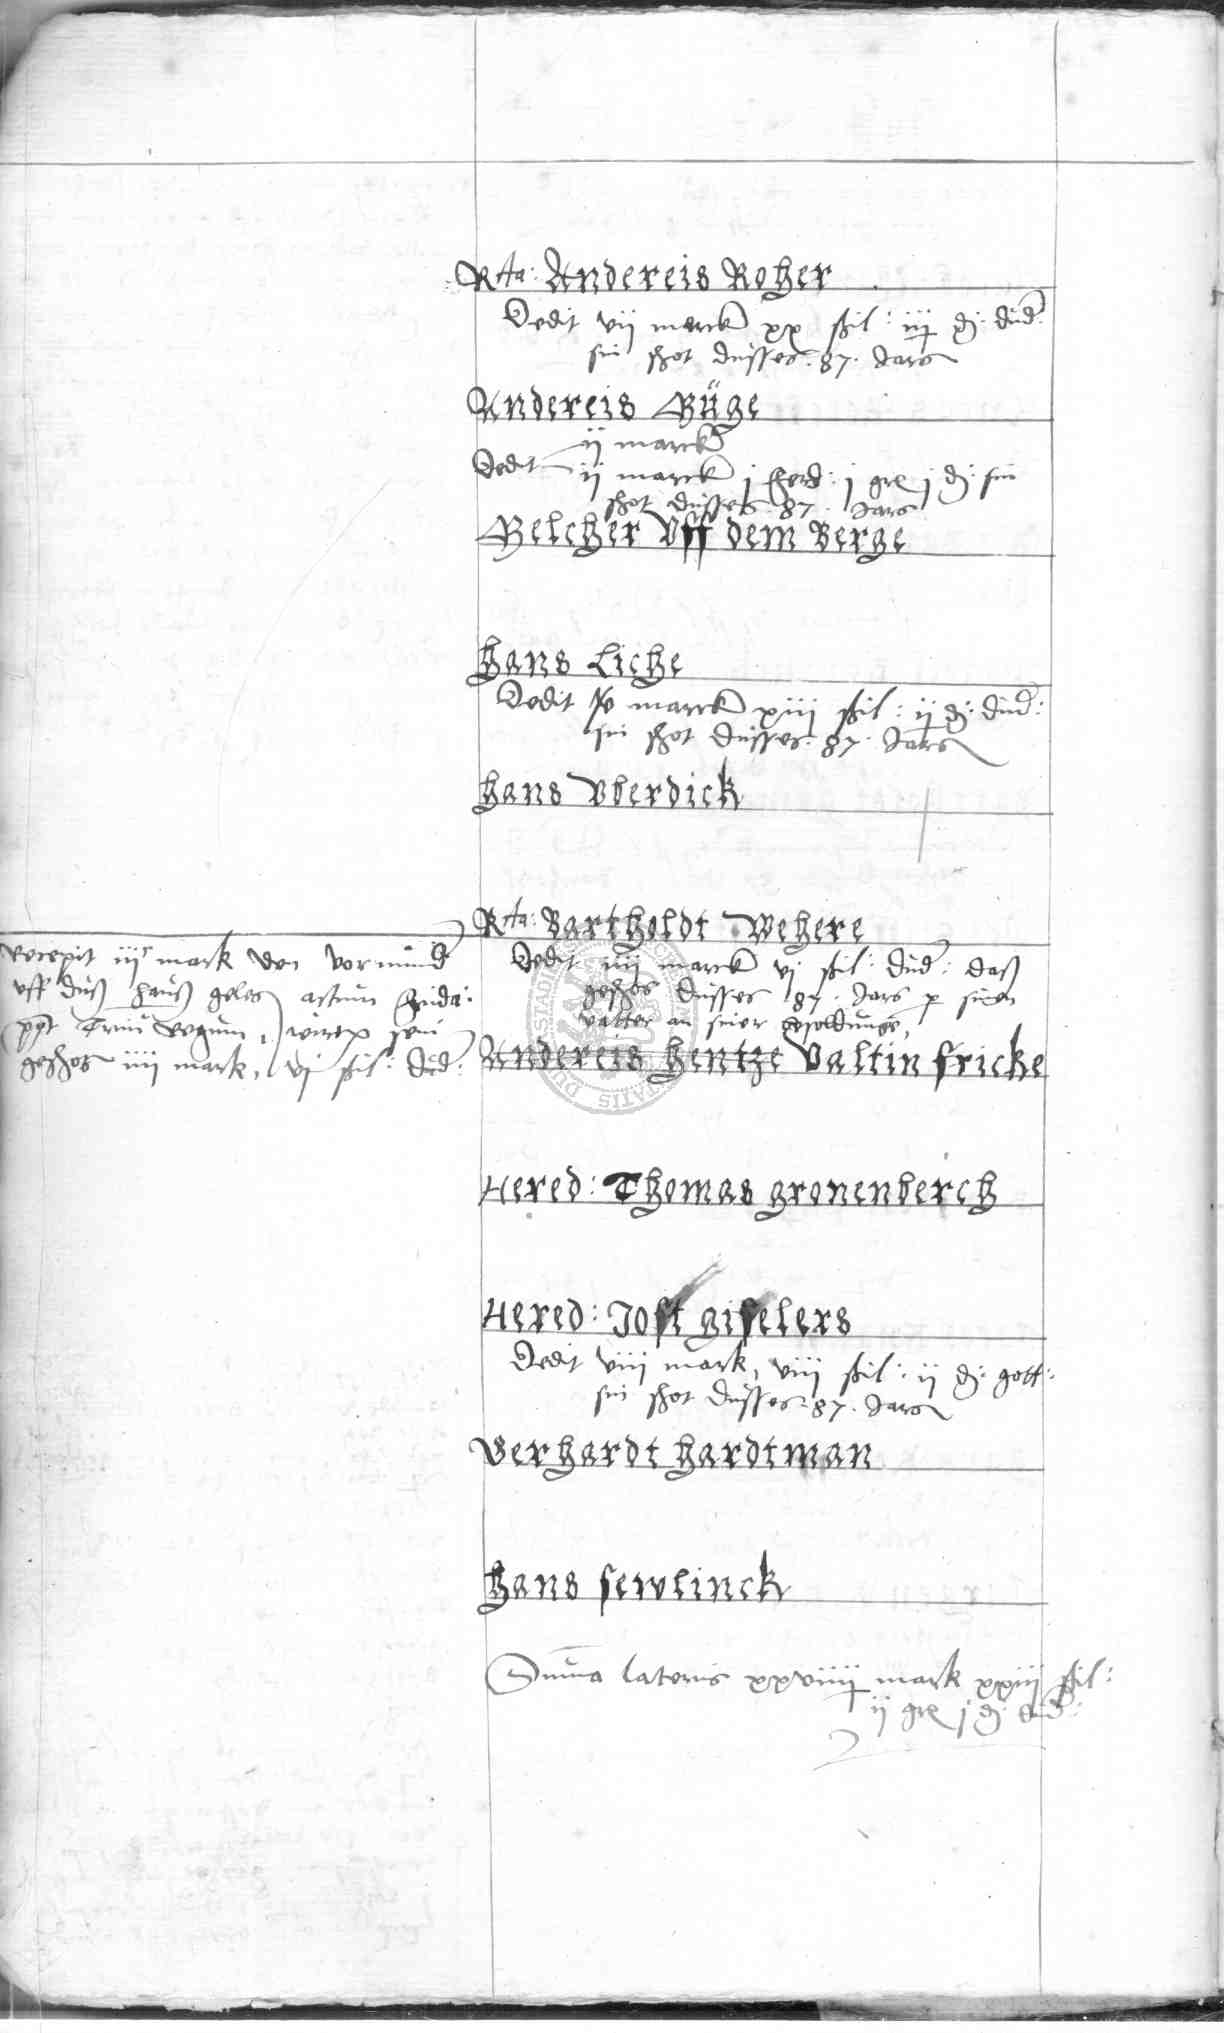 Rta: Andereis Roher
Dedit vij marck xx ßil: iij ₰: dud:
sin shot dusses. 87. Jars
Andereis Büge
ij marck
Dedit ij marck j ferd: j gr j ₰: sin
shot dusses. 87. Jars
Belcher Uff dem Berge
Hans Liche
Dedit marck xiij ßil: ij ₰: dud:
sin shot dusses. 87. Jars
Hans Vberdick
Rta: Bartholdt Wehere
Dedit iiij marck vj ßil: dud: daß
geschos dusses 87. Jars p sinen
vatter an siner besoldunge,
recepit iij mark den vormund
uff duß hauß actum
geschos iiij mark, vj ßil: dud:
Andereis Hentze Valtin Fricke
Hered: Thomas Gronenberch
Hered: Jost Giselers
Dedit viij mark, viij ßil: ij ₰: gott:
sin shot dusses. 87. Jars
Gerhardt Hardtman
Hans Sewlinck
Suma lateris xxviiij mark xxiij ßil:
ij gr j ₰: dud: